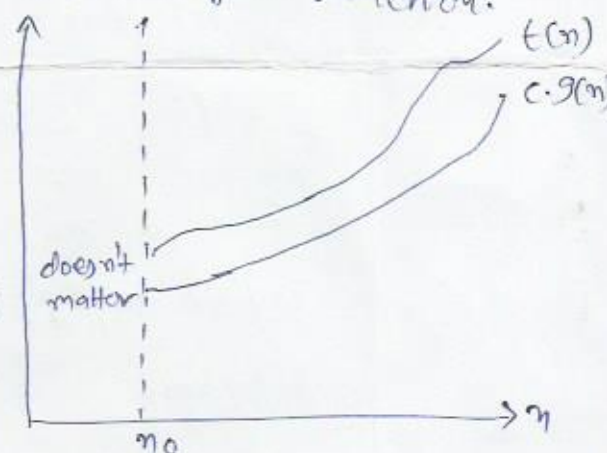 t(n)
c.g(n)
doesn't
matter
n
n0